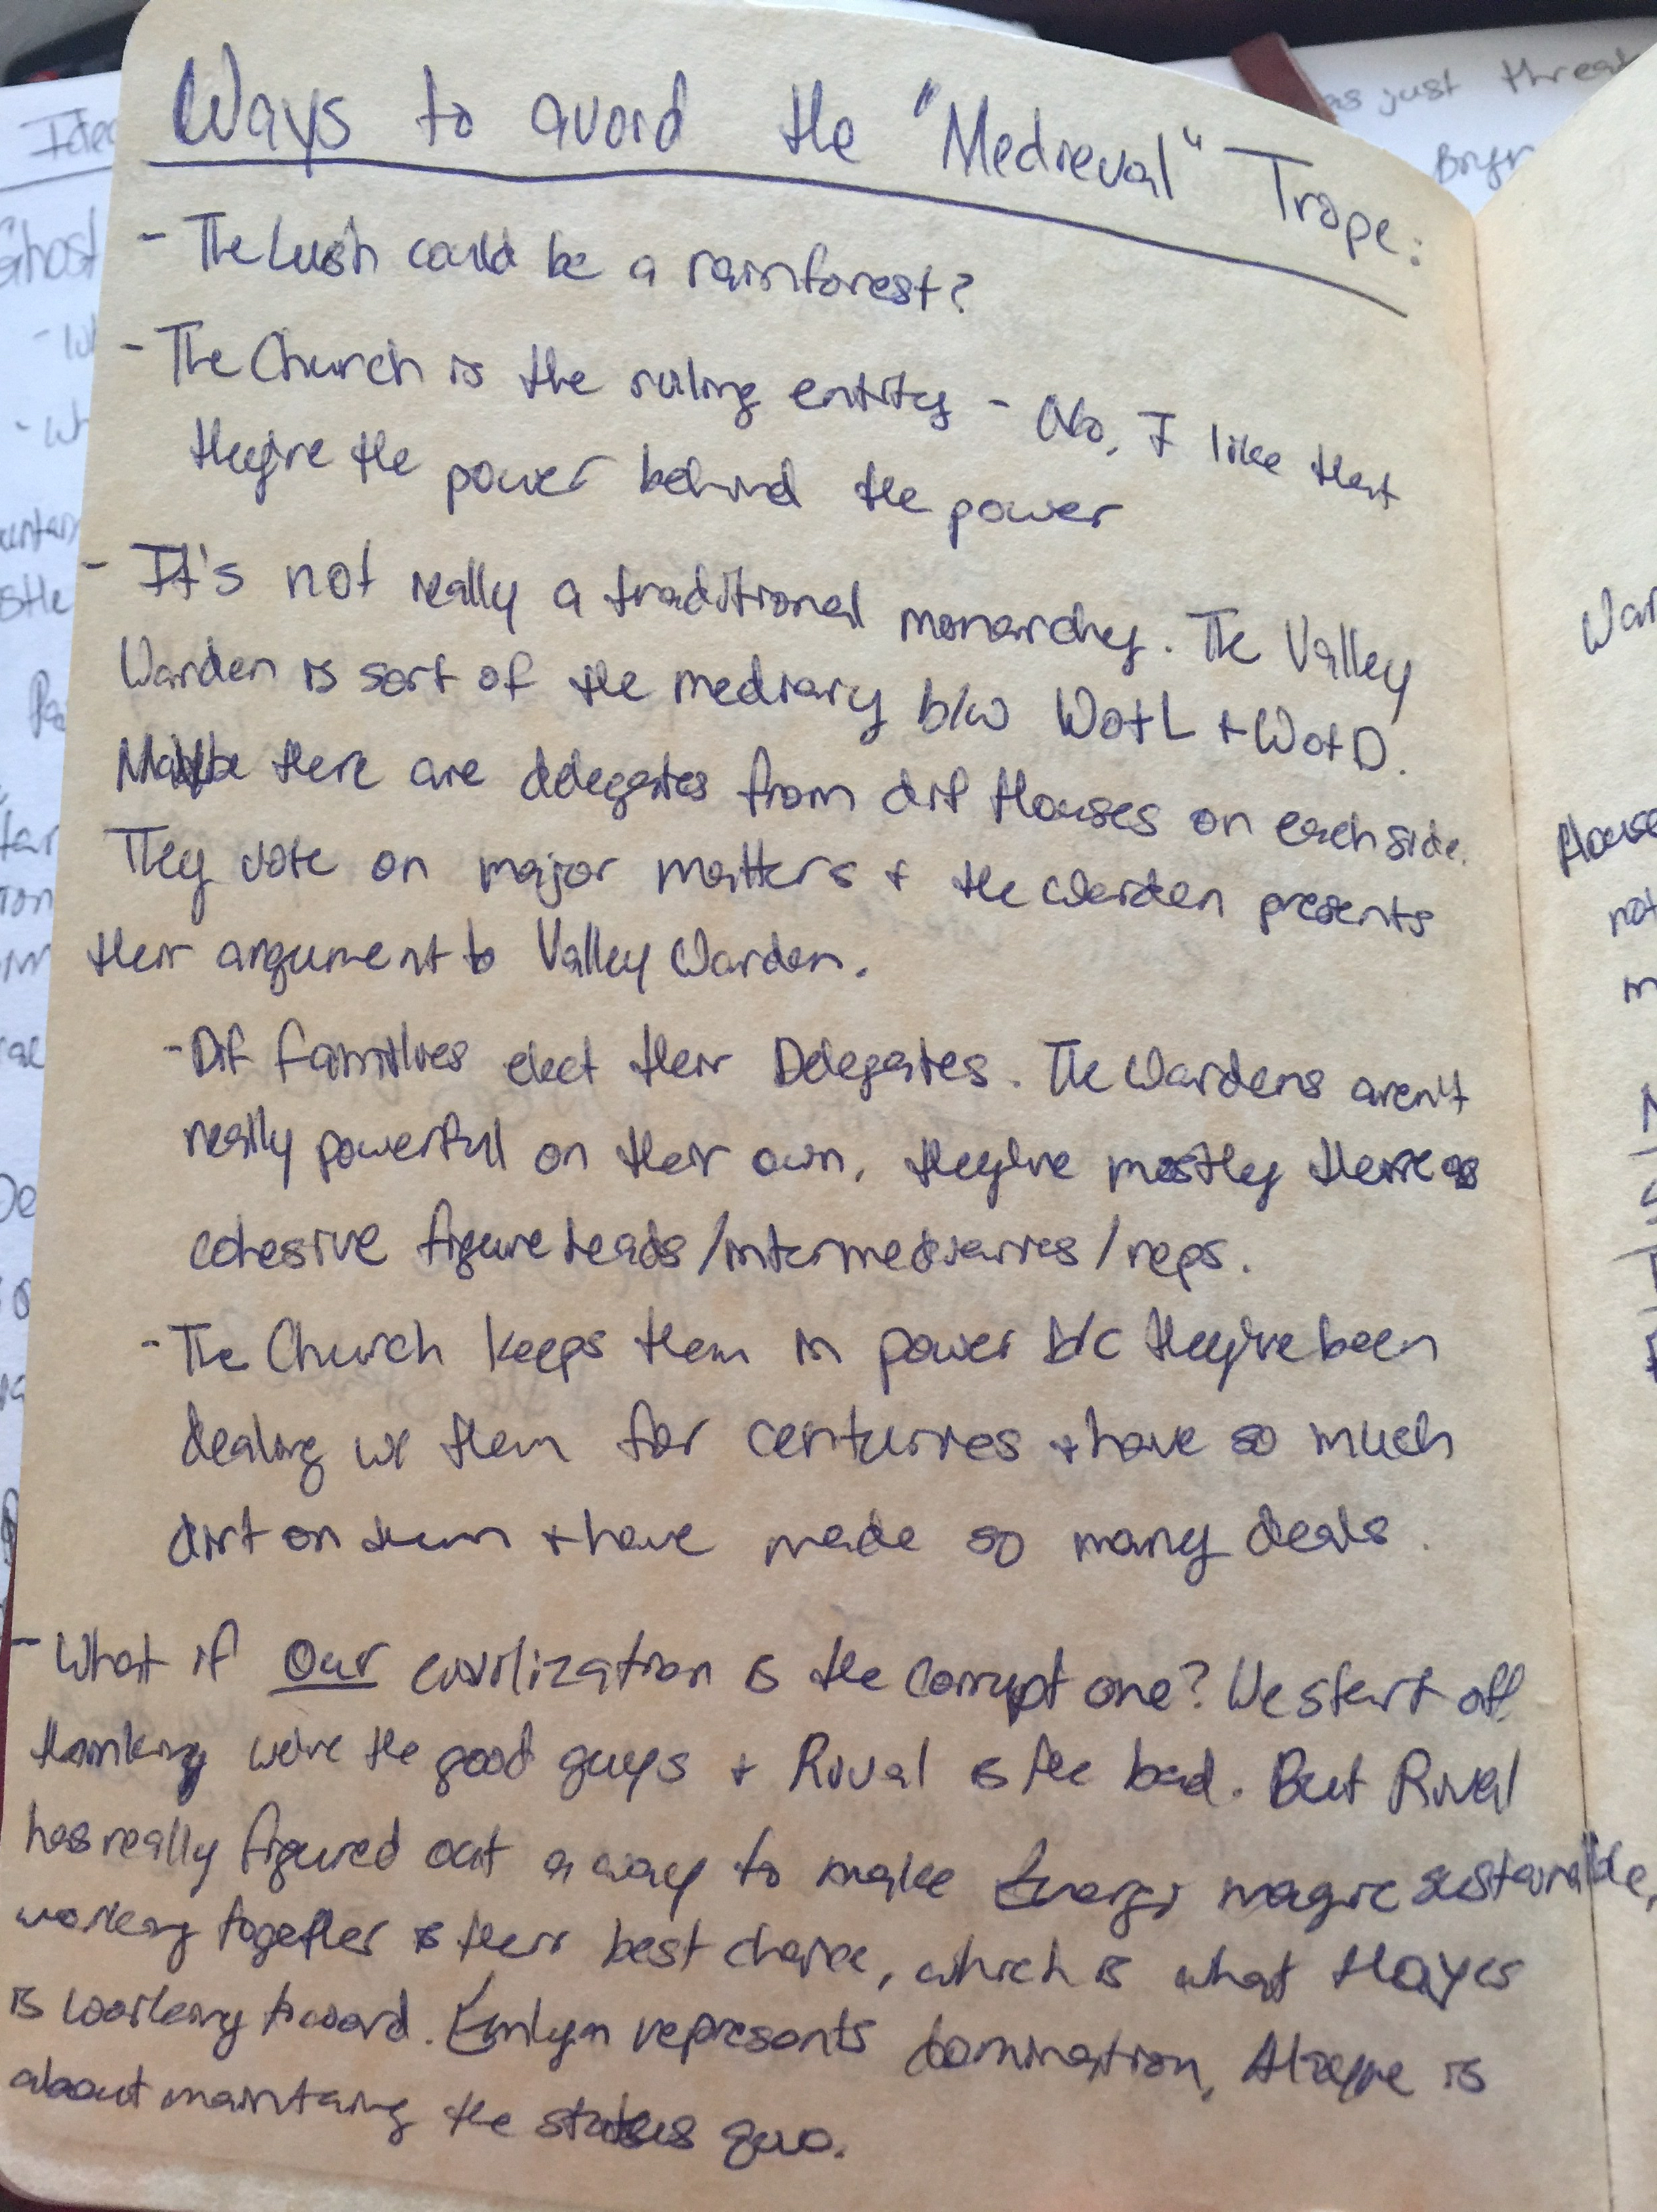 Ways to avoid the "Medieval" Trope:
- The Lush could be a rainforest?
- The Church is the ruling entity - No, I like that
they're the power behind the power
- It's not really a traditional monarchy. The Valley
Warden is sort of the mediary b/w WotL + WotD.
Maybe there are delegates from dif Houses on each side.
They vote on major matters + the Warden presents
their argument to Valley Warden.
- Dif families elect their Delegates. The Wardens aren't
really powerful on their own, they're mostly there as
cohesive figureheads/intermediaries/reps.
- The Church keeps them in power b/c they've been
dealing w/ them for centuries + have so much
dirt on them + have made so many deals.
- What if our civilization is the corrupt one? We start off
thinking we're the good guys + Rival is the bad. But Rival
has really figured out a way to make Energy magic sustainable,
working together is their best choice, which is what Hayes
is working toward. Emlyn represents domination, is
about maintaing the status quo.
as just threat
Ghost
House
not